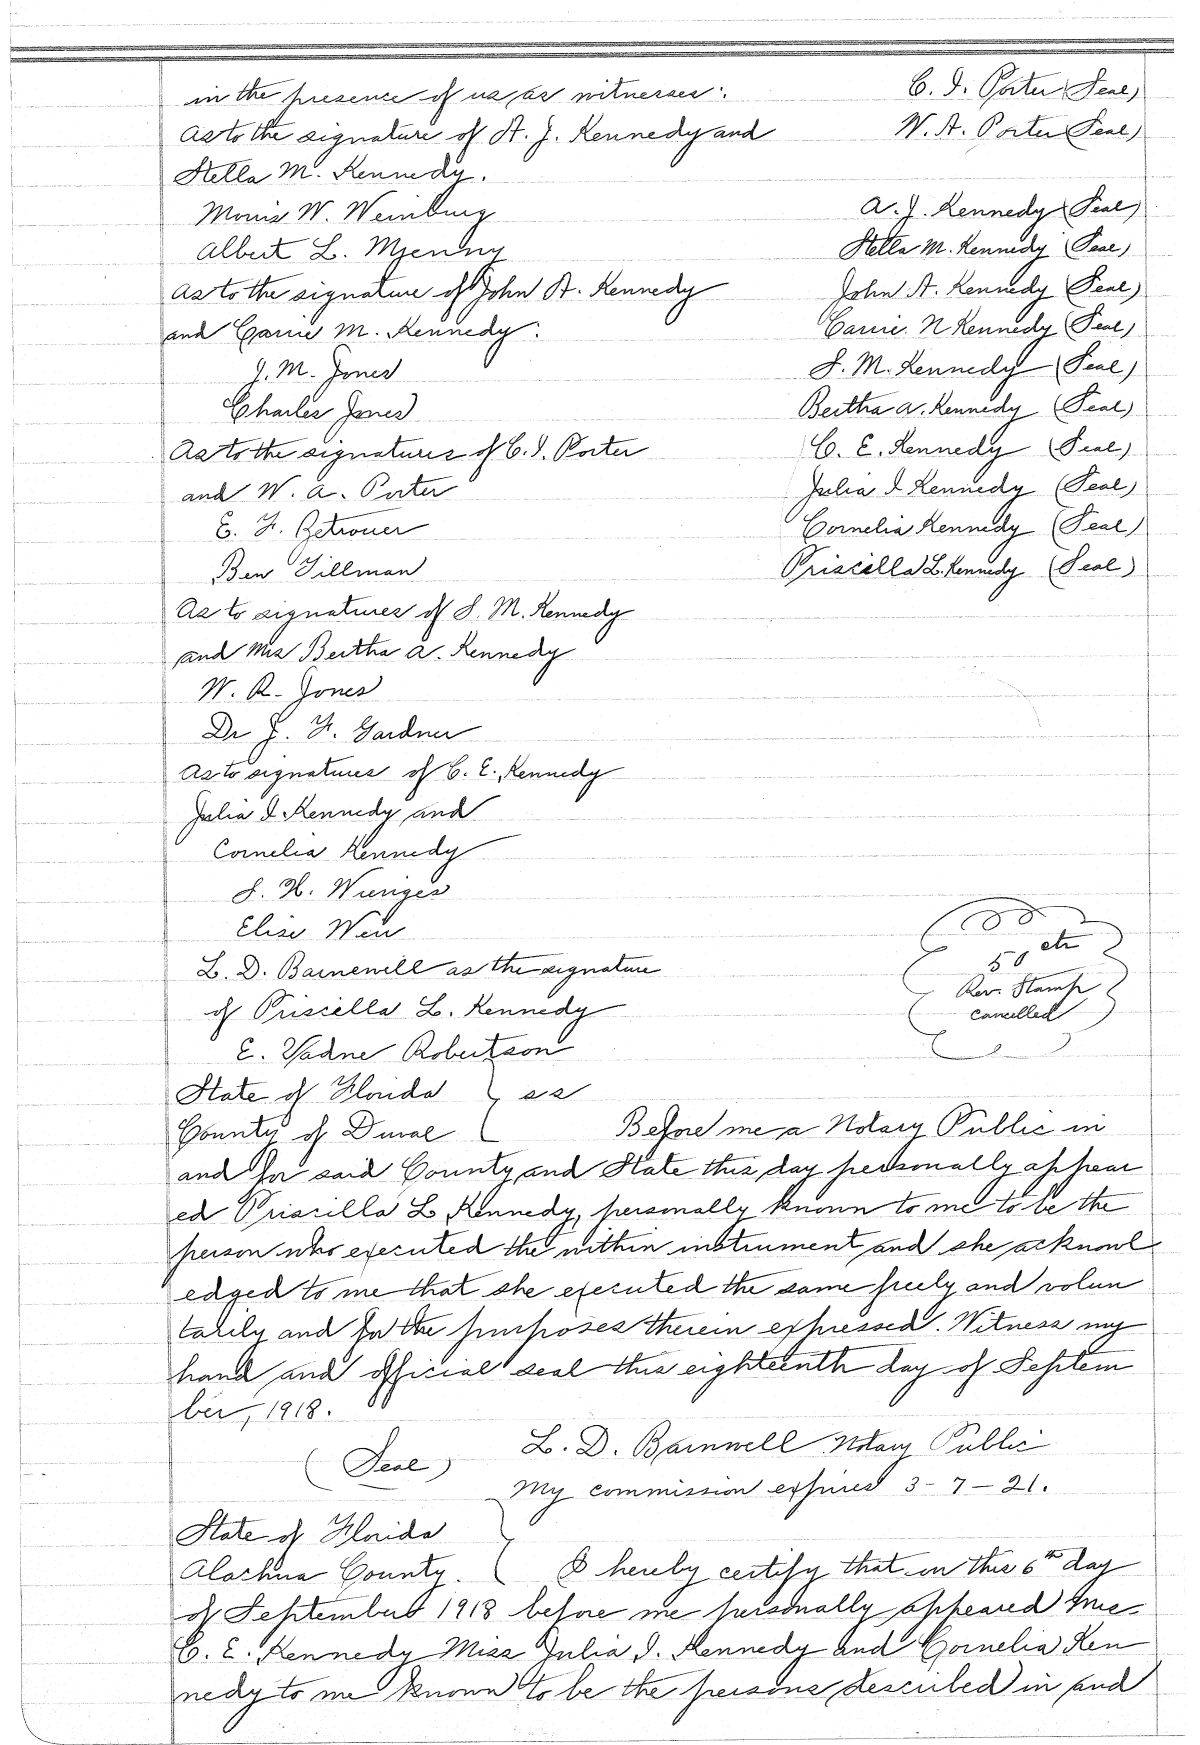 in the presence of us as witnesses:
C. I. Porter (Seal)
As to the signature of A. J. Kennedy and
W. A. Porter (Seal)
Stella M. Kennedy.
Morris W. Weinburg
A. J. Kennedy (Seal)
Albert L.
Stella M. Kennedy (Seal)
As to the signature of John A. Kennedy
John A. Kennedy (Seal)
and Carrie M. Kennedy:
Carrie. N Kennedy (Seal)
J. M. Jones
S. M. Kennedy (Seal)
Charles Jones
Bertha A. Kennedy (Seal)
As to the signatures of C. I. Porter
C. E. Kennedy (Seal)
and W. A. Porter
Julia I Kennedy (Seal)
E. F. Betrouer
Cornelia Kennedy (Seal)
Ben Tillman
Priscilla L. Kennedy (Seal)
As to signatures of S. M. Kennedy
and Mrs Bertha A. Kennedy
W. R. Jones
Dr J. F. Gardner
As to signatures of C. E. Kennedy
Julia I Kennedy and
Cornelia Kennedy
S. H. Wienges
Elise Weir
L. D. Barnewell as the signature
of Priscilla L. Kennedy
E. Vadne Robertson
50 cts
Rev. Stamp
cancelled
State of Florida } ss
County of Duval Before me a Notary Public in
and for said County and State this day personally appear
ed Priscilla L Kennedy, personally known to me to be the
person who executed the within instrument and she acknowl
edged to me that she executed the same freely and volun
tarily and for the purposes therein expressed. Witness my
hand and official seal this eighteenth day of Septem
ber, 1918.
L. D. Barnwell Notary Public
(Seal)
My commission expires 3-7-21.
State of Florida
Alachua County. I hereby certify that on this 6th day
of September 1918 before me personally appeared Mrs.
C. E. Kennedy Miss Julia I. Kennedy and Cornelia Ken
nedy to me known to be the persons described in and